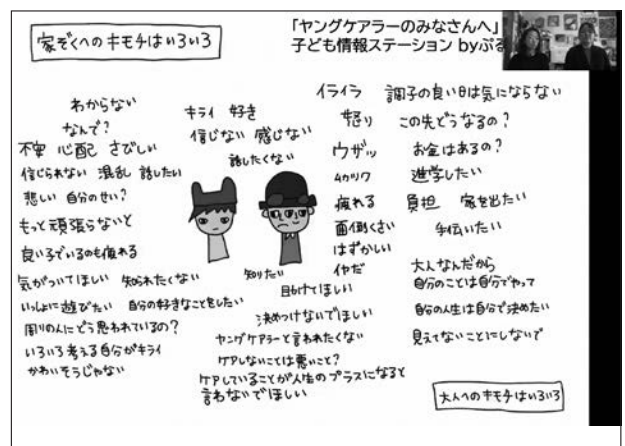 家ぞくへのキモチはいろいろ
「ヤングケアラーのみなさんへ」
子ども情報ステーション byぷる
わからない
なんで?
不安 心配 さびしい
信じられない 混乱 話したい
悲しい 自分のせい?
もっと頑張らないと
良い子でいるのも疲れる
気がついてほしい 知られたくない
いっしょに遊びたい 自分の好きなことをしたい
周りの人にどう思われているの?
いろいろ考える自分がキライ
かわいそうじゃない
キライ 好き
信じない 感じない
話したくない
知りたい
助けてほしい
決めつけないでほしい
ヤングケアラーと言われたくない
ケアしないことは悪いこと?
ケアしていることが人生のプラスになると
言わないでほしい
イライラ
怒り
ウザッ
ムカツク
疲れる
面倒くさい
はずかしい
イヤだ
調子の良い日は気にならない
この先どうなるの?
お金はあるの?
進学したい
負担 家を出たい
手伝いたい
大人なんだから
自分のことは自分でやって
自分の人生は自分で決めたい
見えてないことにしないで
大人へのキモチはいろいろ